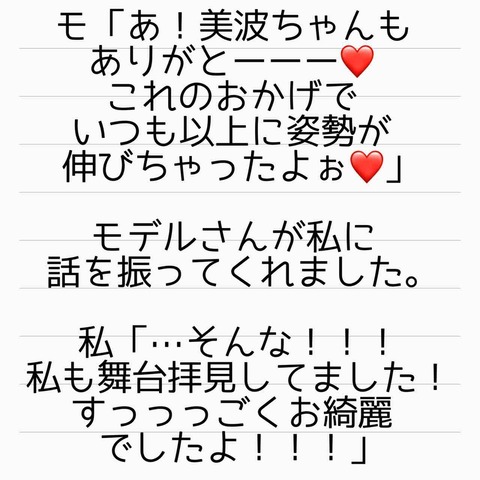 モ「あ！美波ちゃんも
ありがとーーー❤️
これのおかげで
いつも以上に姿勢が
伸びちゃったよぉ❤️」
モデルさんが私に
話を振ってくれました。
私「…そんな！！！
私も舞台拝見してました！
すっっっごくお綺麗
でしたよ！！！」